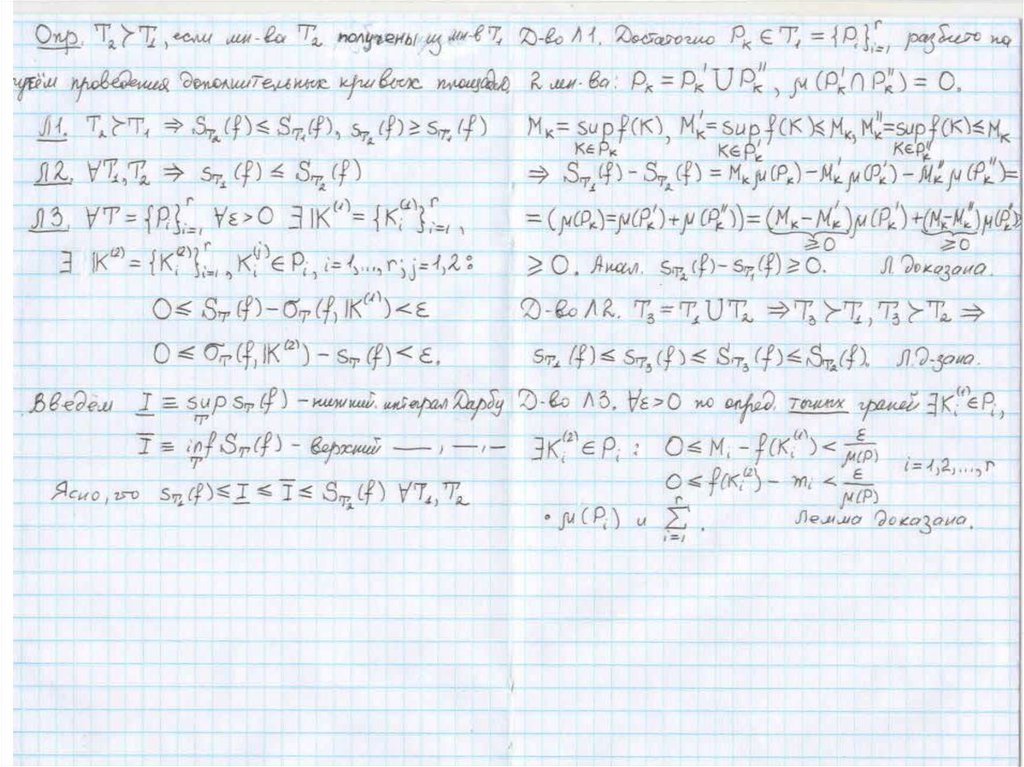 Опр. T₂≻T₁, если мн-ва T₂ получены из мн-в T₁
путём проведения дополнительных кривых площади 0
Л1. T₂≻T₁ ⇒ S_T₂(f) ≤ S_T₁(f), s_T₂(f) ≥ s_T₁(f)
Л2. ∀T₁,T₂ ⇒ s_T₁(f) ≤ S_T₂(f)
Л3. ∀T = {Pᵢ}ʳᵢ₌₁, ∀ε>0 ∃ |K⁽¹⁾ = {Kᵢ⁽¹⁾}ʳᵢ₌₁,
∃ |K⁽²⁾ = {Kᵢ⁽²⁾}ʳᵢ₌₁, Kᵢ⁽ʲ⁾∈Pᵢ, i=1,...,r; j=1,2:
0 ≤ S_T(f) - σ_T(f,|K⁽¹⁾) < ε
0 ≤ σ_T(f,|K⁽²⁾) - s_T(f) < ε.
Введём I̲ ≡ sup_T s_T(f) - нижний интеграл Дарбу
I̅ ≡ inf_T S_T(f) - верхний —— , — , —
Ясно, что s_T₁(f) ≤ I̲ ≤ I̅ ≤ S_T₂(f) ∀T₁,T₂
Д-во Л1. Достаточно P_K ∈ T₁ = {Pᵢ}ʳᵢ₌₁ разбито на
2 мн-ва: P_K = P_K' ∪ P_K'', μ(P_K' ∩ P_K'') = 0.
M_K = sup f(K), M_K' = sup f(K) ≤ M_K, M_K'' = sup f(K) ≤ M_K
K∈P_K K∈P_K' K∈P_K''
⇒ S_T₁(f) - S_T₂(f) = M_K μ(P_K) - M_K' μ(P_K') - M_K'' μ(P_K'') =
= (μ(P_K) = μ(P_K') + μ(P_K'')) = (M_K - M_K')μ(P_K') + (M_K - M_K'')μ(P_K'')
≥0 ≥0
≥ 0. Анал. s_T₂(f) - s_T₁(f) ≥ 0. Л. доказана.
Д-во Л2. T₃ = T₁ ∪ T₂ ⇒ T₃≻T₁, T₃≻T₂ ⇒
s_T₁(f) ≤ s_T₃(f) ≤ S_T₃(f) ≤ S_T₂(f). Л. д-зана.
Д-во Л3. ∀ε>0 по опред. точных граней ∃Kᵢ⁽¹⁾∈Pᵢ,
∃Kᵢ⁽²⁾∈Pᵢ: 0 ≤ Mᵢ - f(Kᵢ⁽¹⁾) < ε/μ(P)
i=1,2,...,r
0 ≤ f(Kᵢ⁽²⁾) - mᵢ < ε/μ(P)
• μ(Pᵢ) и ∑ʳᵢ₌₁. Лемма доказана.